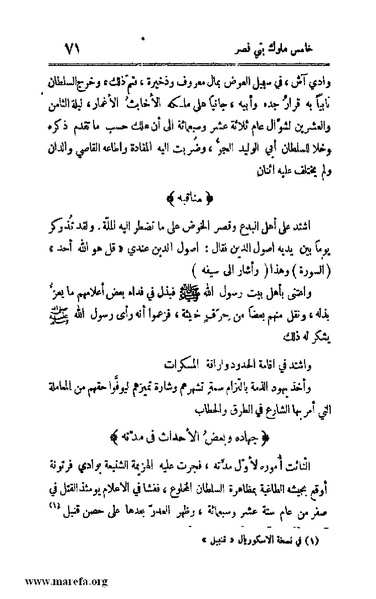 خامس ملوك بني نصر
٧١
وادي آش ، في سبيل العوض بمال معروف وذخيرة ، فتم ذلك ، وخرج السلطان
نابياً به قرار جده وأبيه ، جانياً على ملكه الأخابث الأغمار ، ليلة الثامن
والعشرين لشوال عام ثلاثة عشر وسبعمائة الى أن هلك حسب ما تقدم ذكره
وخلا للسلطان أبي الوليد الجو ، وضربت اليه المقادة وأطاعه القاصي والدان
ولم يختلف عليه اثنان
﴿ مناقبه ﴾
اشتد على أهل البدع وقصر الخوض على ما تضطر اليه الملة . ولقد تذوكر
يوماً بين يديه أصول الدين فقال : أصول الدين عندي « قل هو الله أحد »
( السورة ) وهذا ( وأشار الى سيفه )
واعتنى بأهل بيت رسول الله ﷺ فبذل في فداء بعض أعلامهم ما يعز
بذله ، ونقل منهم بعضاً من حرف خبيثة ، فزعموا أنه رأى رسول الله ﷺ
يشكر له ذلك
واشتد في اقامة الحدود واراقة المسكرات
وأخذ يهود الذمة بالتزام سمة تشهرهم وشارة تميزهم ليوفوا حقهم من المعاملة
التي أمر بها الشارع في الطرق والخطاب
﴿ جهاده وبعض الأحداث في مدته ﴾
التاثت أموره لأول مدته ، فجرت عليه الهزيمة الشنيعة بوادي فرتونة
أوقع بجيشه الطاغية بمظاهرة السلطان المخلوع ، ففشا في الاعلام يومئذ القتل في
صفر من عام ستة عشر وسبعمائة ، وظهر العدو بعدها على حصن قنبل (١)
(١) في نسخة الاسكوريال « قنبيل »
www.marefa.org